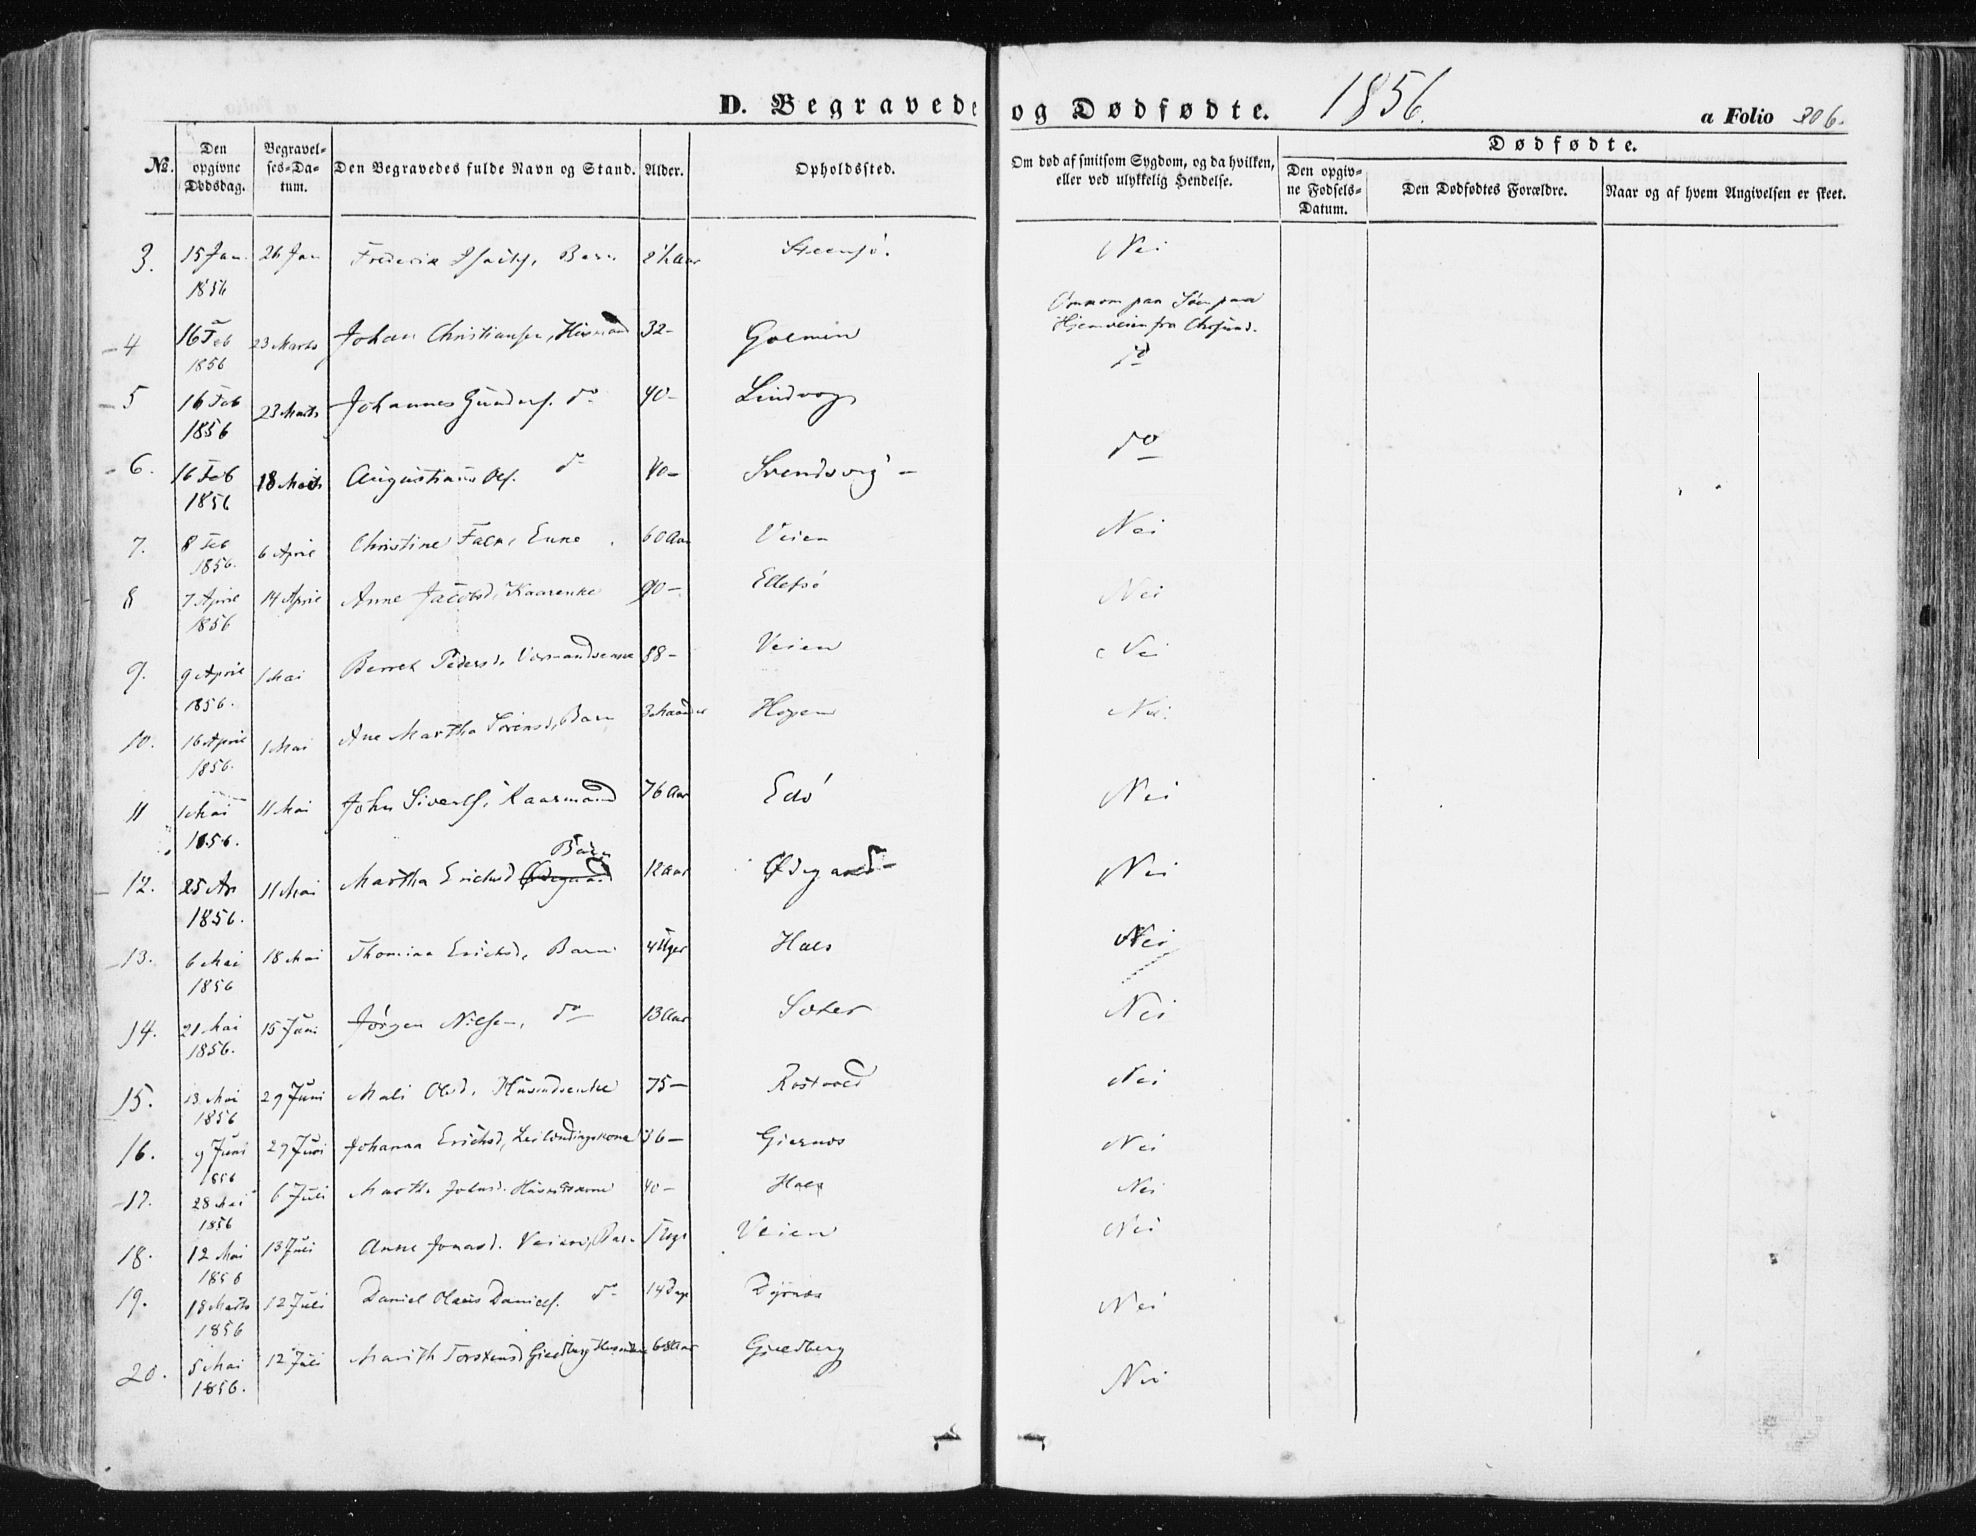 D. Begravede og Dødfødte. 1856. a Folio 306.
No. Den opgivne Dødsdag. Begravelses-Datum. Den Begravedes fulde Navn og Stand. Alder. Opholdssted. Om død af smitsom Sygdom, og da hvilken, eller ved ulykkelig Hendelse. Dødfødte. Den opgivne Fødsels-Datum. Den Dødfødtes Forældre. Naar og af hvem Angivelsen er skeet.
3. 15 Jan 1856 26 Jan Frederik Barn Aar Steensö. Nei
4 16 Feb 1856 23 Marts Johan Christiansen, Husmand 32- Golmen Omkom paa Söen paa Hjemveien fra Chrsund.
5 16 Feb 1856 23 Marts Johannes Gunders. do 40- Lindvog do
6. 16 Feb 1856 18 Marts Augustinus Ols. do 40- Svendsvig - do
7. 8 Feb 1856. 6 April Christine Falk, Enke 60 Aar Veien Nei
8 7 April 1856 14 April Anne Jacobsd, Kaarenke 90- Ellefsö Nei
9. 9 April 1856. 1 Mai Berret Pedersd. 58- Veien Nei
10. 16 April 1856. 1 Mai Ane Martha Sörensd, Barn 3 Maaneder Hopen Nei.
11 1 Mai 1856. 11 Mai John Siverts. Kaarmand 76 Aar Edö Nei
12. 25 Ap 1856. 11 Mai Martha Erichsd Ødegaard Barn 12 Aar Ødegaard- Nei
13. 6 Mai 1856 18 Mai Thomina Erichsd, Barn 4 Uger Hals Nei
14. 21 Mai 1856. 15 Juni Jörgen Nilsen, do 13 Aar Soter Nei
15. 13 Mai 1856 29 Juni Mali Olsd. Husmdsenke 75- Rostvold Nei
16. 9 Juni 1856 29 Juni Johanna Erichsd, Leilændingskone 36- Giernes Nei
17. 28 Mai 1856 6 Juli Marth. Johnsd. Husmdskone 40- Hals Nei
18. 12 Mai 1856 13 Juli Anne Jonasd. Veien, Barn Veien Nei
19. 18 Marts 1856 12 Juli Daniel Olaus Daniels. do 14 Dage Dyrnes Nei
20. 5 Mai 1856. 12 Juli Marith Torstensd Giedberg 68 Aar Giedberg Nei